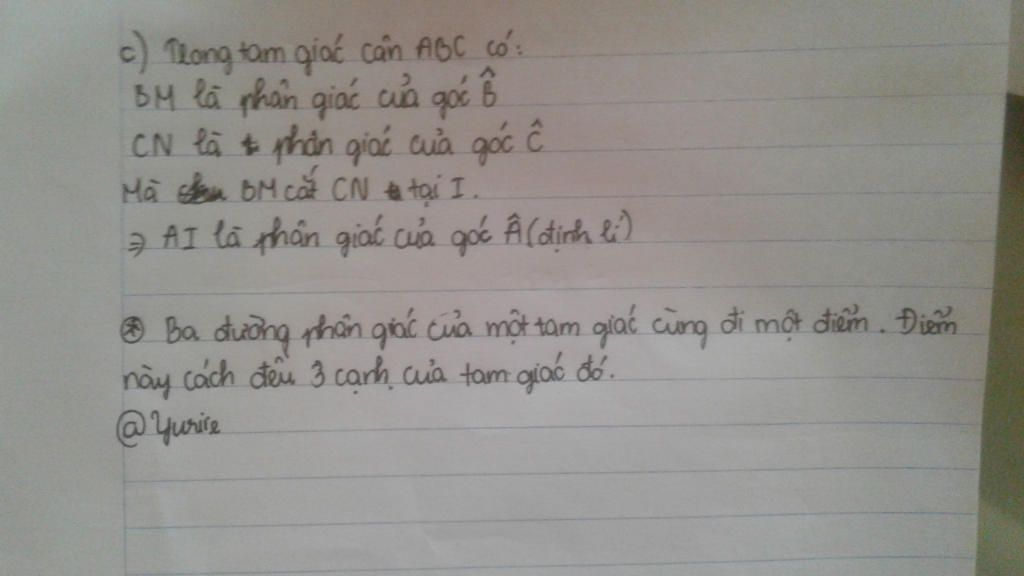 c) Trong tam giác cân ABC có:
BM là phân giác của góc B̂
CN là phân giác của góc Ĉ
Mà BM cắt CN tại I.
⇒ AI là phân giác của góc Â (định lí)
⊛ Ba đường phân giác của một tam giác cùng đi một điểm. Điểm
này cách đều 3 cạnh của tam giác đó.
@Yurire